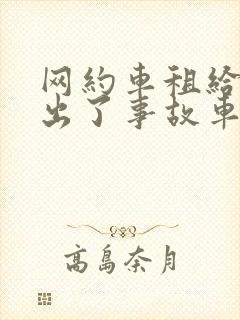 网約車租給
出了事故車
高島奈月